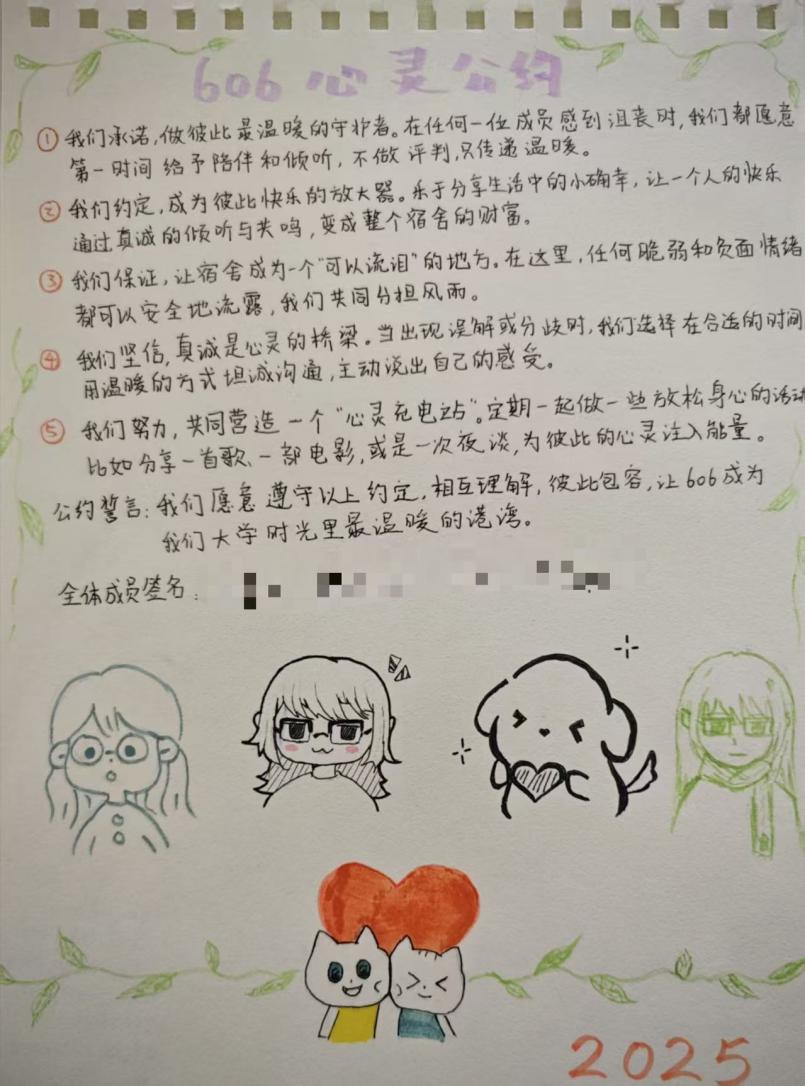 606 心灵公约
① 我们承诺,做彼此最温暖的守护者。在任何一位成员感到沮丧时,我们都愿意
第一时间给予陪伴和倾听,不做评判,只传递温暖。
② 我们约定,成为彼此快乐的放大器。乐于分享生活中的小确幸,让一个人的快乐
通过真诚的倾听与共鸣,变成整个宿舍的财富。
③ 我们保证,让宿舍成为一个“可以流泪”的地方。在这里,任何脆弱和负面情绪
都可以安全地流露,我们共同分担风雨。
④ 我们坚信,真诚是心灵的桥梁。当出现误解或分歧时,我们选择在合适的时间
用温暖的方式坦诚沟通,主动说出自己的感受。
⑤ 我们努力,共同营造一个“心灵充电站”。定期一起做一些放松身心的活动
比如分享一首歌、一部电影,或是一次夜谈,为彼此的心灵注入能量。
公约誓言:我们愿意遵守以上约定,相互理解,彼此包容,让606成为
我们大学时光里最温暖的港湾。
全体成员签名:
2025